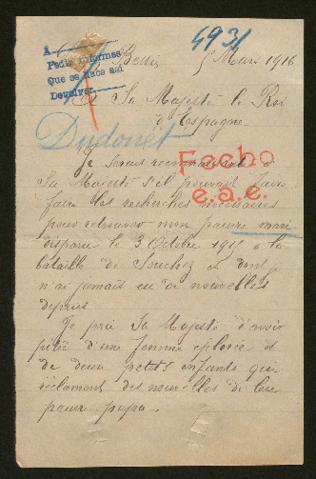 A
Pedir informes
Que se hace así
Devolver
4931
5 Mars 1916
Sa Majesté le Roi
d'Espagne
Dudouet
Fecho
e.a.e.
Je serais reconnaissante
Sa Majesté s'il pouvait faire
faire les recherches nécessaires
pour retrouver mon pauvre mari
disparu le 3 Octobre 1915 à la
bataille de Souchez et dont
n'ai jamais eu de nouvelles
depuis
Je prie Sa Majesté d'avoir
pitié d'une femme éplorée et
de deux petits enfants qui
réclament des nouvelles de leur
pauvre papa.